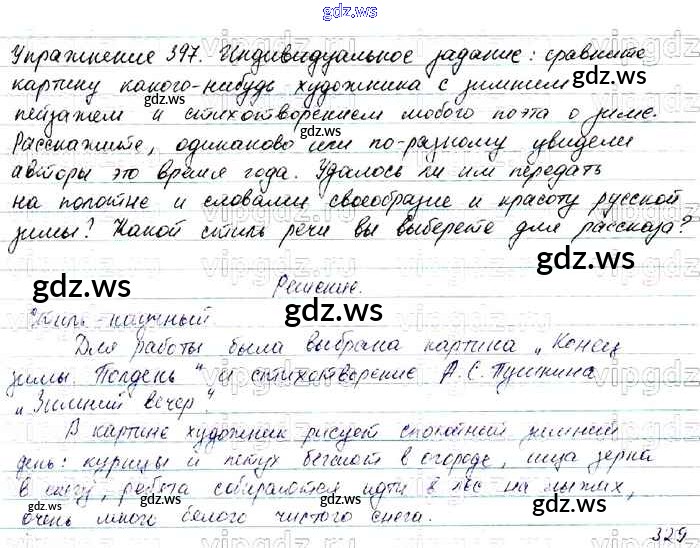 gdz.ws
Упражнение 397. Индивидуальное задание: сравните
картину какого-нибудь художника с зимним
gdz.ws gdz.ws
пейзажем и стихотворением любого поэта о зиме.
Расскажите, одинаково или по-разному увидели
gdz.ws
авторы это время года. Удалось ли им передать
на полотне и словами своеобразие и красоту русской
зимы? Какой стиль речи вы выберете для рассказа?
gdz.ws gdz.ws
Решение.
gdz.ws
Стиль - научный.
Для работы была выбрана картина „Конец
зимы. Полдень" и стихотворение А.С. Пушкина
„Зимний вечер".
gdz.ws
В картине художник рисует спокойный зимний
день: курицы и петух бегают в огороде, ища зерна
в снегу, ребята собираются идти в лес на лыжах,
gdz.ws gdz.ws
очень много белого чистого снега.
329
gdz.ws